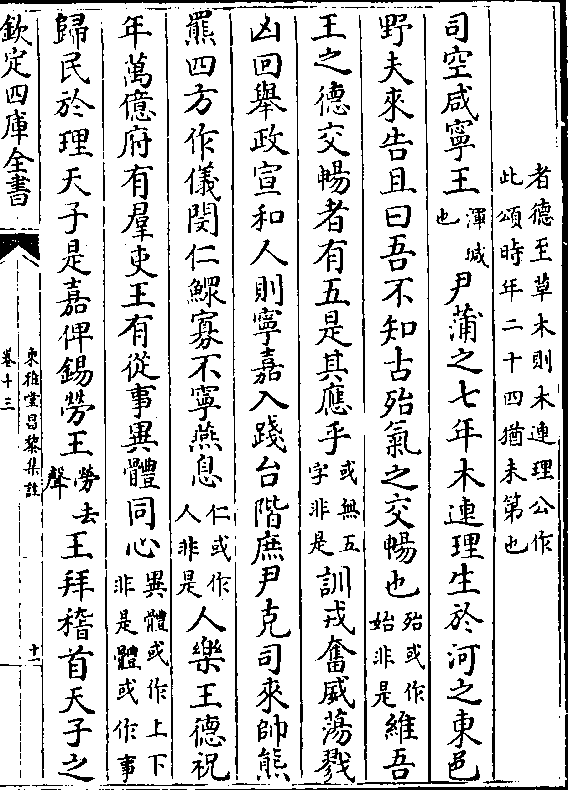 者德至草木則木連理公作
此頌時年二十四猶未第也
司空咸寧王渾瑊也尹蒲之七年木連理生於河之東邑
野夫來告且曰吾不知古殆氣之交暢也殆或作始非是維吾
王之德交暢者有五是其應乎或無五字非是訓戎奮威蕩戮
凶回舉政宣和人則寧嘉入踐台階庶尹克司來帥熊
羆四方作儀閔仁鰥寡不寧燕息仁或作人非是人樂王德祝
年萬億府有羣吏王有從事異體同心異體或作上下非是體或作事
歸民於理天子是嘉俾錫勞王勞去聲王拜稽首天子之
欽定四庫全書
東雅堂昌黎集註
卷十三
十一